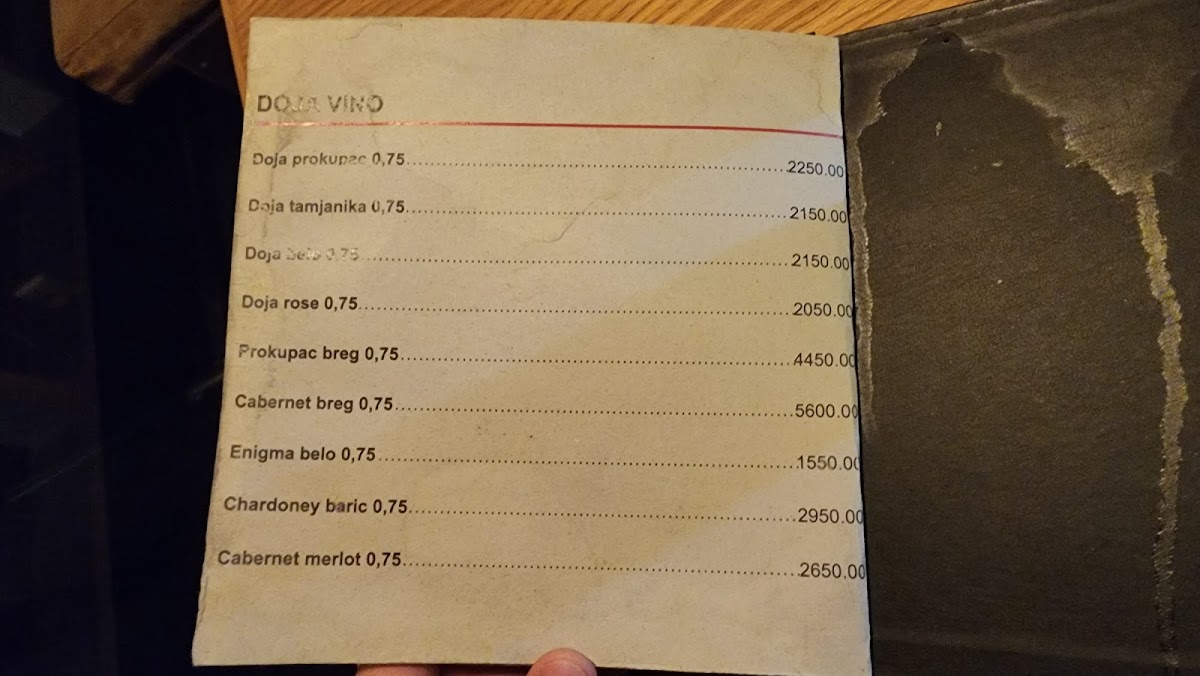 DOJA VINO
Doja prokupac 0,75 2250.00
Doja tamjanika 0,75 2150.00
Doja belo 0,75 2150.00
Doja rose 0,75 2050.00
Prokupac breg 0,75 4450.00
Cabernet breg 0,75 5600.00
Enigma belo 0,75 1550.00
Chardoney baric 0,75 2950.00
Cabernet merlot 0,75 2650.00